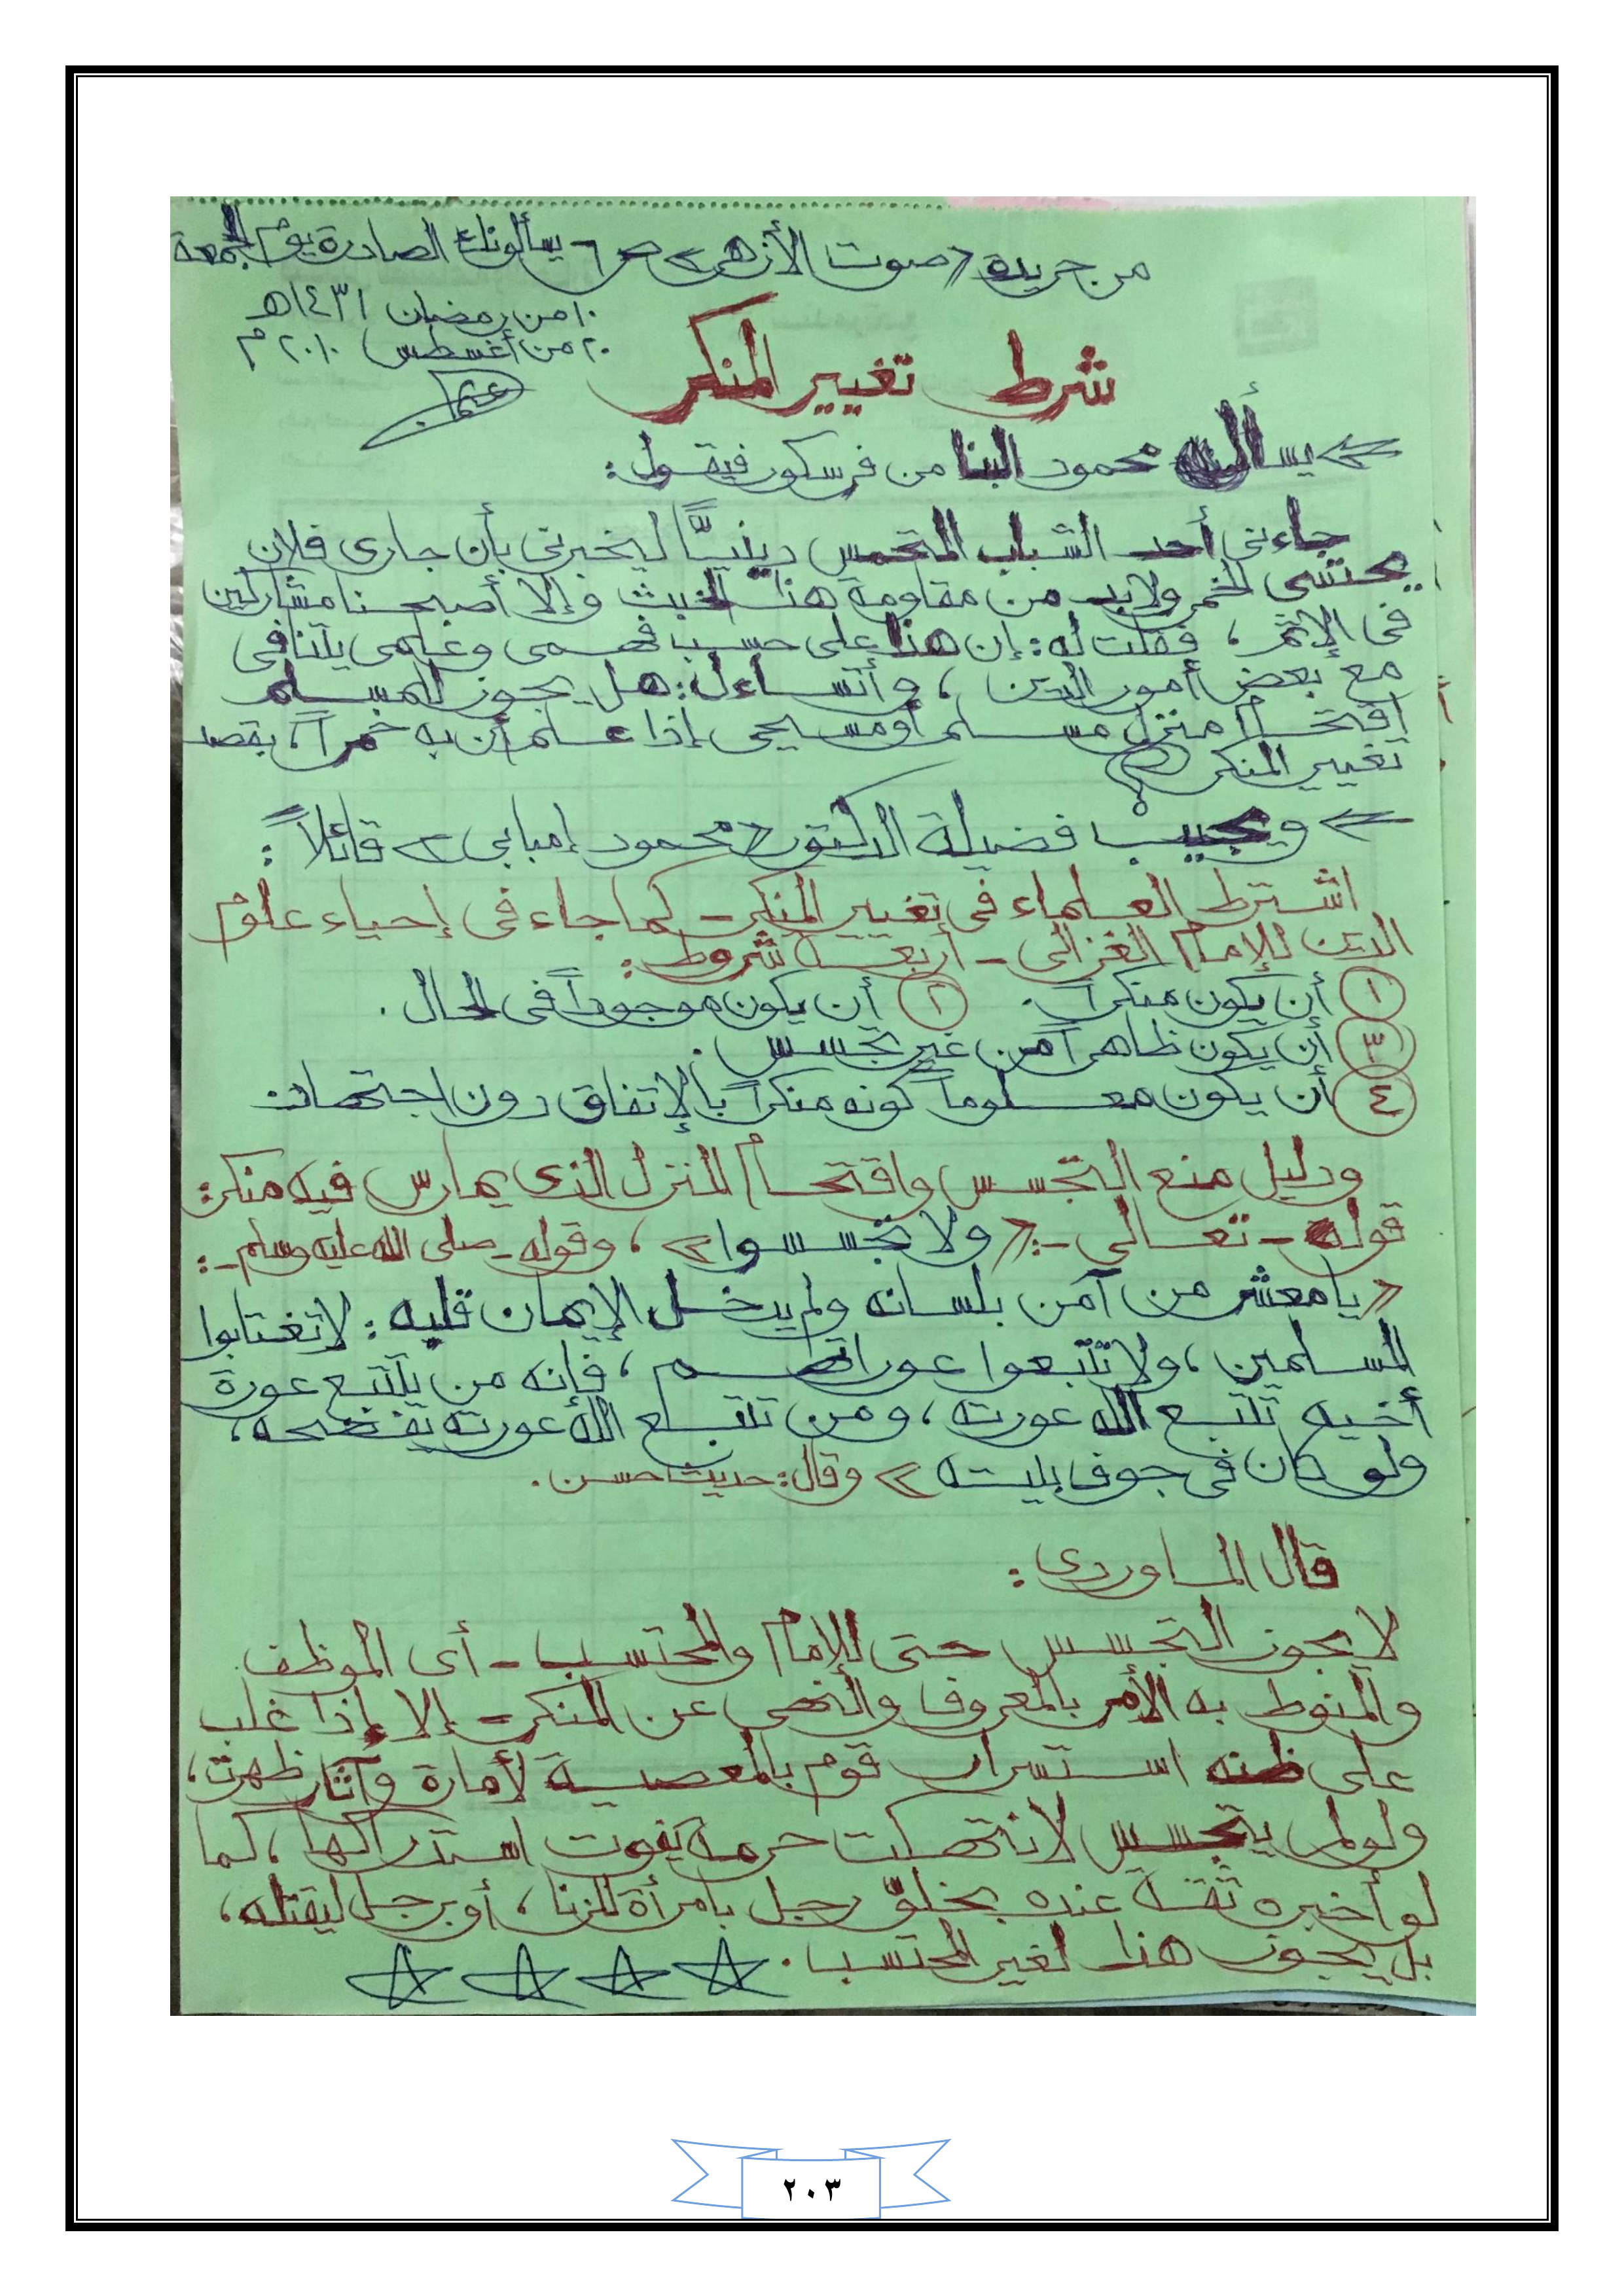 من جريدة «صوت الأزهر» ص ٦ يسألونك الصادرة يوم الجمعة
١٠ من رمضان ١٤٣١هـ
٢٠ من أغسطس ٢٠١٠م
شرط تغيير المنكر
يسأل محمود البنا من فرسكور فيقول:
جاءنى أحد الشباب المتحمس دينيًّا ليخبرنى بأن جارى فلان
يحتسى الخمر ولابد من مقاومة هذا الخبث وإلا أصبحنا مشاركين
فى الإثم، فقلت له: إن هذا على حسب فهمى وعلمى يتنافى
مع بعض أمور الدين، وأتساءل: هل يجوز للمسلم
اقتحام منزل مسلم أو مسيحى إذا علم أن به خمراً، بقصد
تغيير المنكر؟
ويجيب فضيلة الدكتور «محمود إمبابى» قائلاً:
اشترط العلماء فى تغيير المنكر - كما جاء فى إحياء علوم
الدين للإمام الغزالى - أربعة شروط:
١ أن يكون منكراً. ٢ أن يكون موجوداً فى الحال.
٣ أن يكون ظاهراً من غير تجسس.
٤ أن يكون معلوماً كونه منكراً بالإتفاق دون اجتهاد.
ودليل منع التجسس واقتحام المنزل الذى يمارس فيه منكر:
قوله - تعالى -: «ولا تجسسوا»، وقوله - صلى الله عليه وسلم -:
«يا معشر من آمن بلسانه ولم يدخل الإيمان قلبه: لا تغتابوا
المسلمين، ولا تتبعوا عوراتهم، فإنه من يتتبع عورة
أخيه تتبع الله عورته، ومن تتبع الله عورته يفضحه،
ولو كان فى جوف بيته» وقال: حديث حسن.
قال الماوردى:
لا يجوز التجسس حتى للإمام والمحتسب - أى الموظف
والمنوط به الأمر بالمعروف والنهى عن المنكر - إلا إذا غلب
على ظنه استسرار قوم بالمعصية لأمارة وآثار ظهرت،
ولو لم يتجسس لانتهكت حرمة يفوت استدراكها، كما
لو أخبره ثقة عنده بخلوّ رجل بامرأة للزنا، أو برجل ليقتله،
بل يجوز هذا لغير المحتسب.
٢٠٣